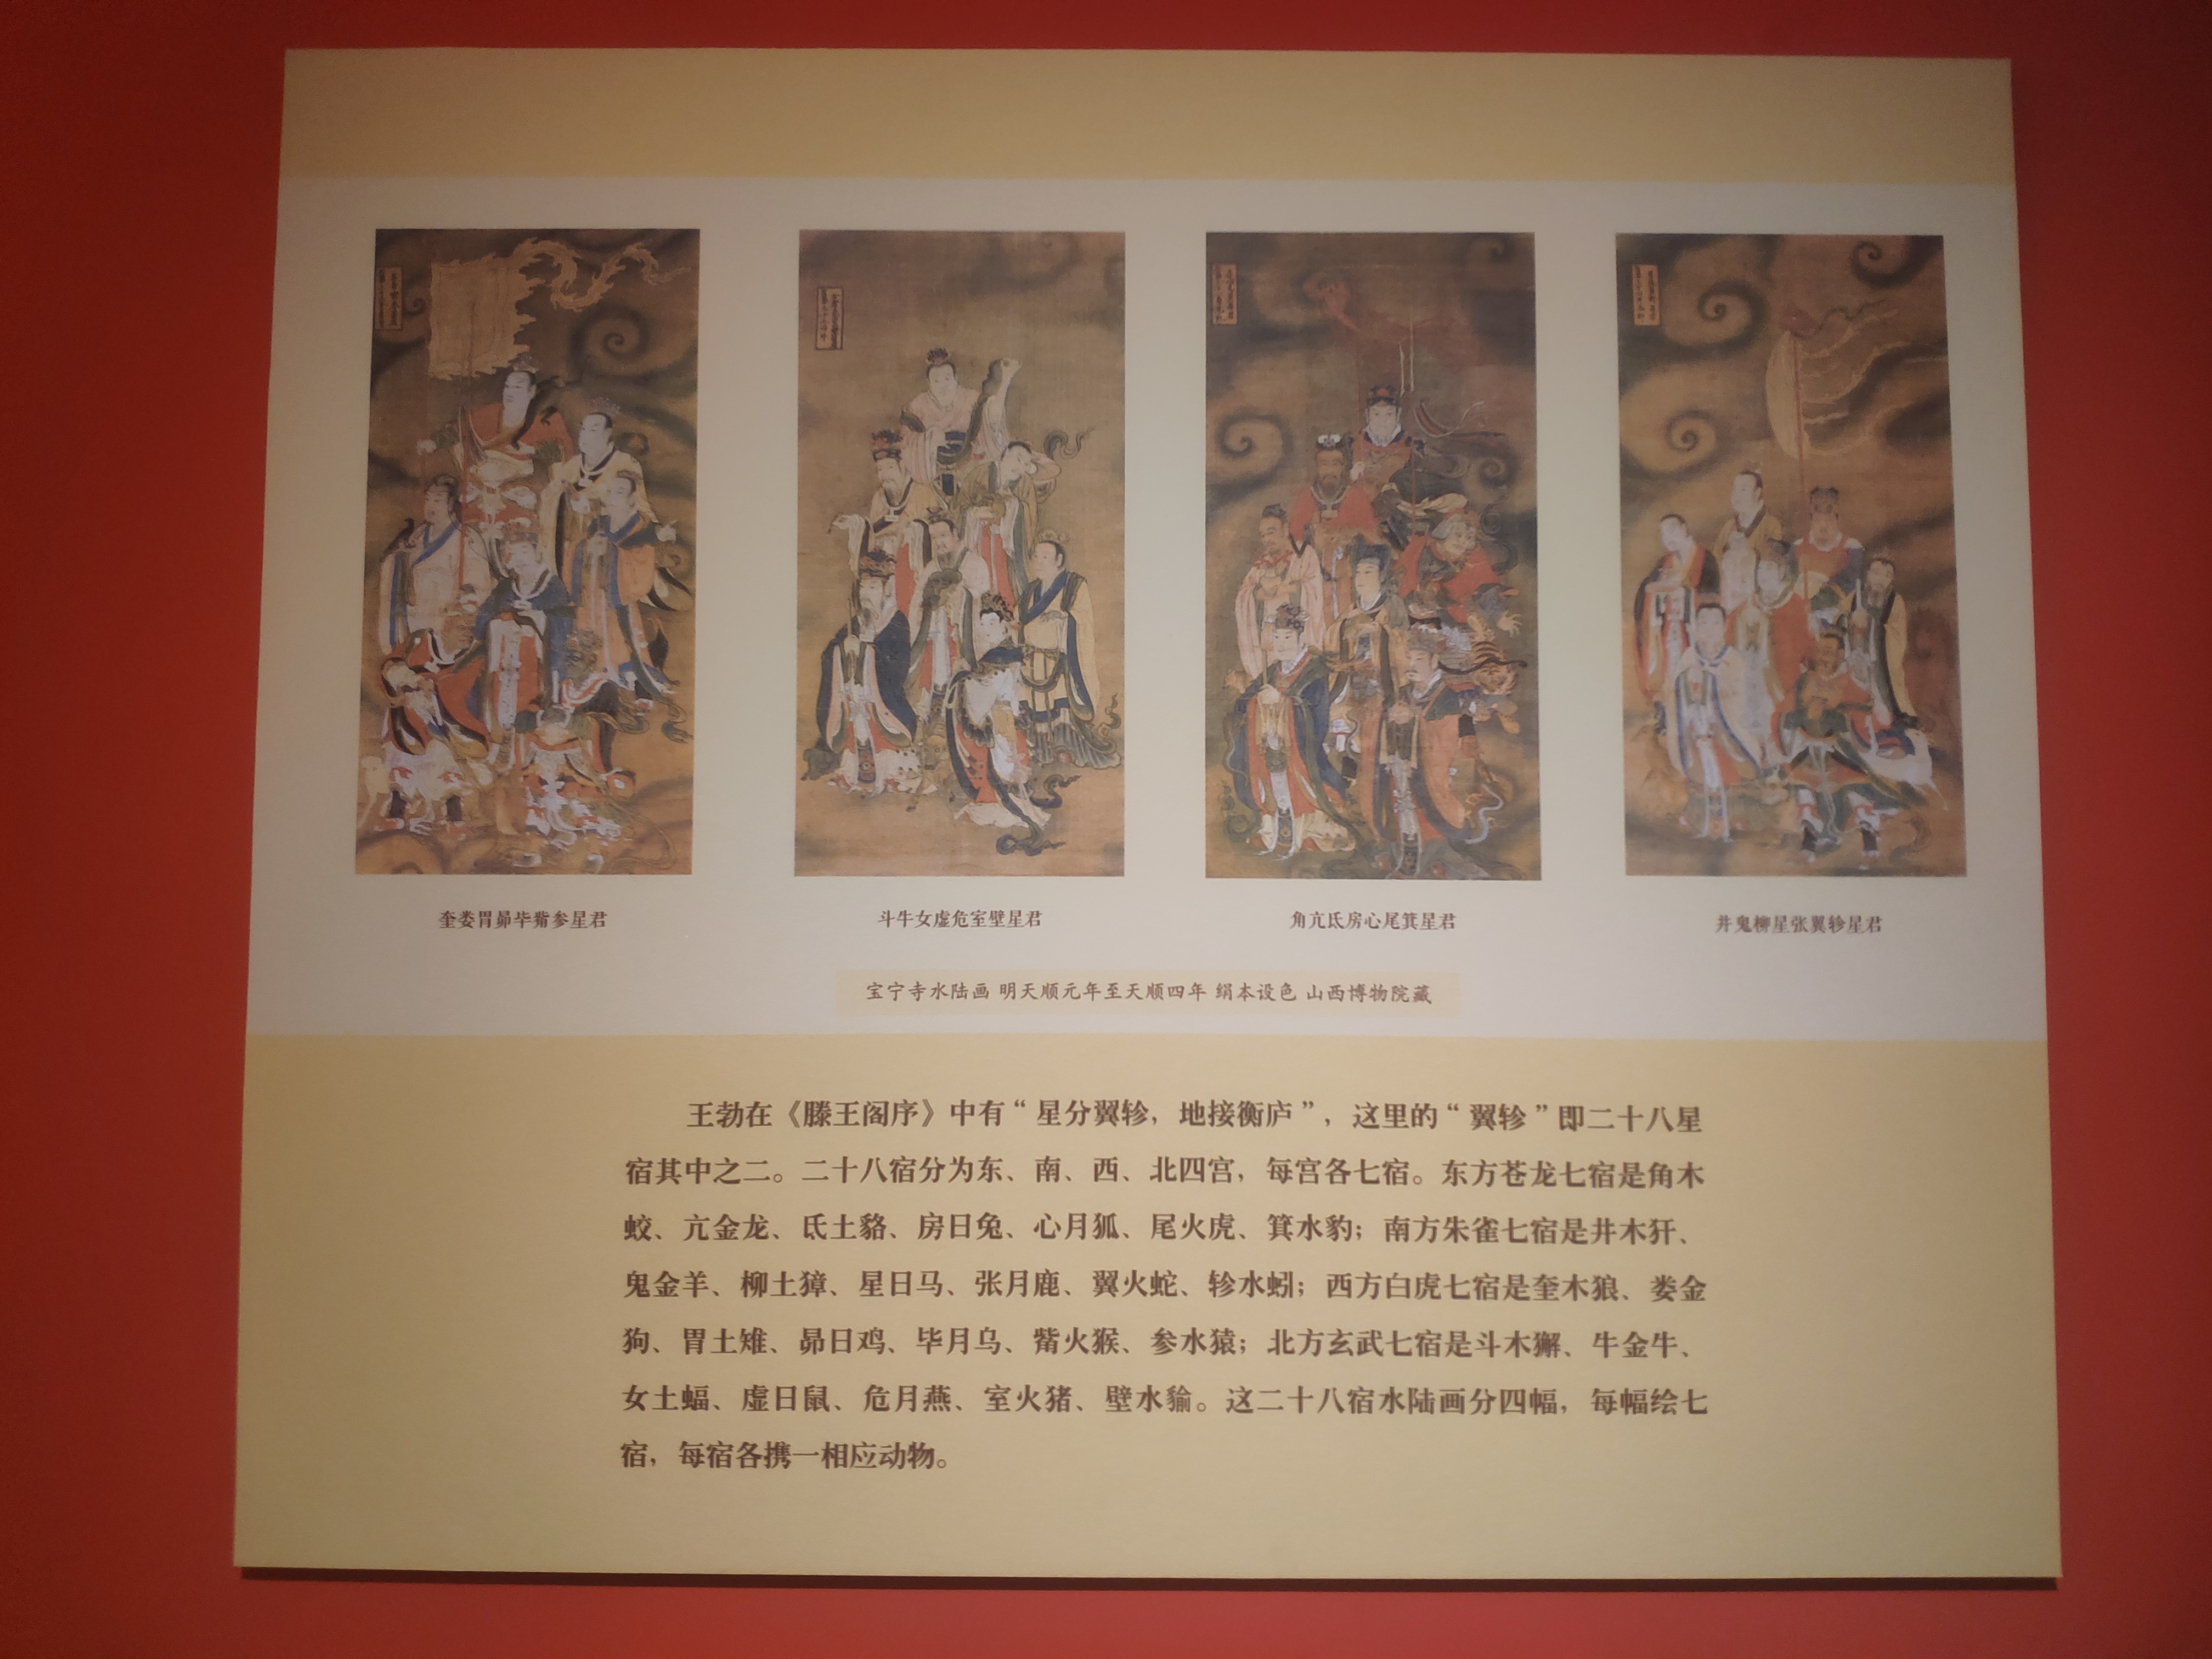 奎娄胃昴毕觜参星君
斗牛女虚危室壁星君
角亢氐房心尾箕星君
井鬼柳星张翼轸星君
宝宁寺水陆画 明天顺元年至天顺四年 绢本设色 山西博物院藏
王勃在《滕王阁序》中有“星分翼轸，地接衡庐”，这里的“翼轸”即二十八星
宿其中之二。二十八宿分为东、南、西、北四宫，每宫各七宿。东方苍龙七宿是角木
蛟、亢金龙、氐土貉、房日兔、心月狐、尾火虎、箕水豹；南方朱雀七宿是井木犴、
鬼金羊、柳土獐、星日马、张月鹿、翼火蛇、轸水蚓；西方白虎七宿是奎木狼、娄金
狗、胃土雉、昴日鸡、毕月乌、觜火猴、参水猿；北方玄武七宿是斗木獬、牛金牛、
女土蝠、虚日鼠、危月燕、室火猪、壁水貐。这二十八宿水陆画分四幅，每幅绘七
宿，每宿各携一相应动物。